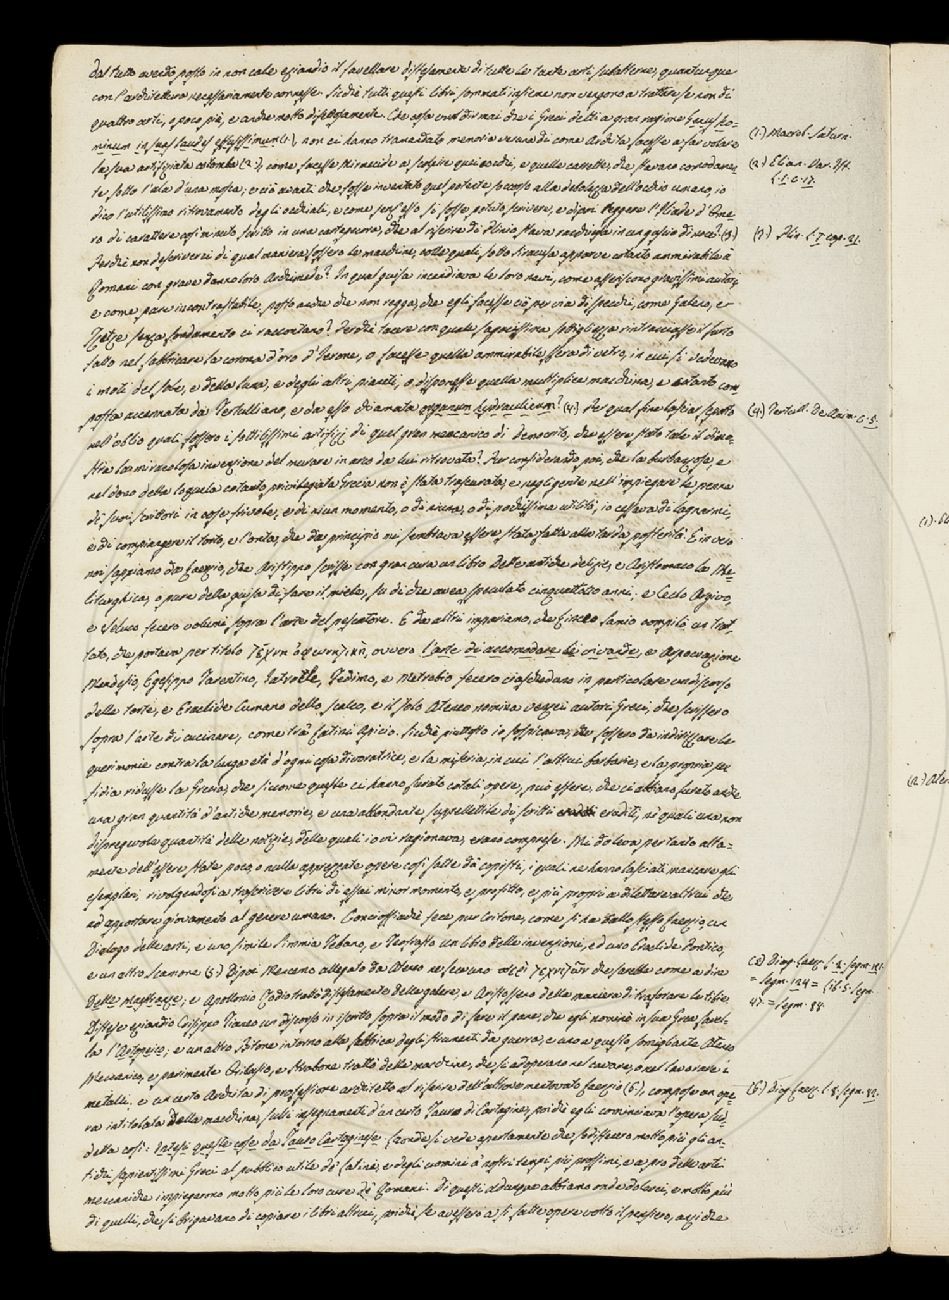 dal tutto avendo posto in non cale eziandio il favellare distesamente di tutte le tante arti subalterne, quantunque
con l'architettura necessariamente connesse. Sicchè tutti questi libri sommati insieme non vengono a trattare se non di
quattro arti, o poco più, e anche molto disgiuntamente. Che cosa vuol dir mai che i Greci detti a gran ragione
minum in suas laudes effusissimum (1.), non ci hanno tramandato memoria veruna di come Archita facesse a far volare
la sua artifiziata colomba (2.), come facesse Mirmecide a scolpire quei cocchi, e quelle carrette, che stavano comodamen-
te sotto l'ala d'una mosca; e ciò avanti che fosse inventato quel potente soccorso alla debolezza dell'occhio umano, io
dico l'utilissimo ritrovamento degli occhiali, e come senz'esso si fosse potuto scrivere, e dipoi leggere l'Iliade d'Ome-
ro di carattere così minuto scritto in una cartapecora, che al riferire di Plinio stava racchiusa in un guscio di noce? (3.)
Perchè non descriverci di qual maniera fossero le macchine, nelle quali sotto Siracusa apparve cotanto ammirabile à
Romani con grave danno loro Archimede? In qual guisa incendiava le loro navi, come asseriscono gravissimi autori,
e come pare incontrastabile, posto anche che non regga, che egli facesse ciò per via di specchi, come Galeno, e
Tzetze senza fondamento ci raccontano? Perchè tacere con quale sagacissima sottigliezza rintracciasse il furto
fatto nel fabbricare la corona d'oro d'Ierone, o facesse quella ammirabile sfera di vetro, in cui si vedevano
i moti del sole, e della luna, e degli altri pianeti, o disponesse quella multiplice macchina, e cotanto com
posta accennata da Tertulliano, e da esso chiamata organum hydraulicum? (4.) Per qual fine lasciar sepolto
nell'oblio quali fossero i sottilissimi artifizj di quel gran meccanico di Democrito, che essere stato tale il dimo-
stra la miracolosa invenzione del murare in arco da lui ritrovata? Pur considerando poi, che la
nel dono della loquela cotanto privilegiata Grecia non è stata trascurata, e negligente nell'impiegare la penna
de' suoi scrittori in cose frivole, e di niun momento, o di niuna, o di pochissima utilità, io cessava di lagnarmi,
e di compiangere il torto, e l'onta, che da principio mi sembrava essere stata fatta alla tarda posterità. E in vero
noi sappiamo da Laerzio, che Aristippo scrisse con gran cura un libro Delle antiche delizie, e Aristomaco la Me-
liturghica, o pure della guisa di fare il miele, su di che avea speculato cinquantotto anni; e Ceclo Argivo,
e Seleuco fecero volumi sopra l'arte del pescatore. E da altri impariamo, che Linceo Samio compilò un trat-
tato, che portava per titolo ovvero l'arte di accomodare le vivande, e
Mendesio, Egesippo Tarentino, Iatrocle, e Metrobio fecero ciascheduno in particolare un discorso
delle torte, e Eraclide Cumano dello scalco, e il solo Ateneo nomina autori Greci, che scrissero
sopra l'arte di cucinare, come trà Latini Apicio. Sicchè piuttosto io sospicava, che fossero da indirizzare le
querimonie contra la lunga età d'ogni cosa divoratrice, e la miseria, in cui l'altrui barbarie, e la propria per
fidia ridusse la Grecia, che siccome queste ci hanno furato cotali opere, può essere, che ci abbiano furato anche
una gran quantità d'antiche memorie, e una abbondante suppellettile di scritti eruditi, nè quali una non
dispregevole quantità delle notizie, delle quali io vi ragionava, erano comprese. Mi doleva per tanto alta-
mente dell'essere state poco, o nulla apprezzate opere così fatte da copisti, i quali ne hanno lasciati mancare gli
esemplari, rivolgendosi a trascrivere libri di assai minor momento, e profitto, e più proprj a dilettare altrui che
ad apportare giovamento al genere umano. Conciossiachè fece pur Critone, come si ha dallo stesso Laerzio, un
Dialogo delle arti, e uno simile Simmia Tebano, e Teofrasto un libro delle invenzioni, ed uno Eraclide Pontico,
e un altro (5.) Dipoi Menecmo allegato da Ateneo ne fece uno περὶ τεχνιτῶν che sarebbe come a dire
Delle Maestranze; e Apollonio trattò distesamente delle galere, e Aristosseno della maniera di traforare le tibie.
Distese eziandio Crisippo Tianeo un discorso in iscritto sopra il modo di fare il pane, che egli nominò in sua Greca favel-
la l'Artopoiico; e un altro Bitone intorno alla fabbrica degli strumenti da guerra, e uno a questo somigliante Ateneo
Meccanico, e parimente Filisto, e Strabone trattò delle macchine, che si adoperano nel cavare, o nel lavorare i
metalli, e un certo Archita di professione architetto al riferire dell'altrove mentovato Laerzio (6.), compose un ope-
ra intitolata Della macchina, sulli insegnamenti d'un certo Teucro di Cartagine, poichè egli cominciava l'opera sud-
detta così: Intesi queste cose da Teucro Cartaginese. Laonde si vede apertamente che sodisfecero molto più gli an-
tichi sapientissimi Greci al pubblico utile de' Latini, e degli uomini a' nostri tempi più prossimi, e a pro delle arti
meccaniche impiegarono molto più le loro cure de' Romani. Di questi adunque abbiamo onde dolerci, e molto più
di quelli, che si brigavano di copiare i libri altrui, poichè se avessero a sì fatte opere volto il pensiero, anzi che
(1.) Macrob. Saturn.
(2.) Elian. Var. Ist.
l. 1. c. 17.
(3.) Plin. l. 7. cap. 21.
(4.) Tertull. De Anim. c. 5.
(5.) Diog. Laerz. l. 2. segm. 121.
= segm. 124 = lib. 5. segm.
47. = segm. 88.
(6.) Diog. Laerz. l. 8. segm. 82.
(1).
(2.) Aten